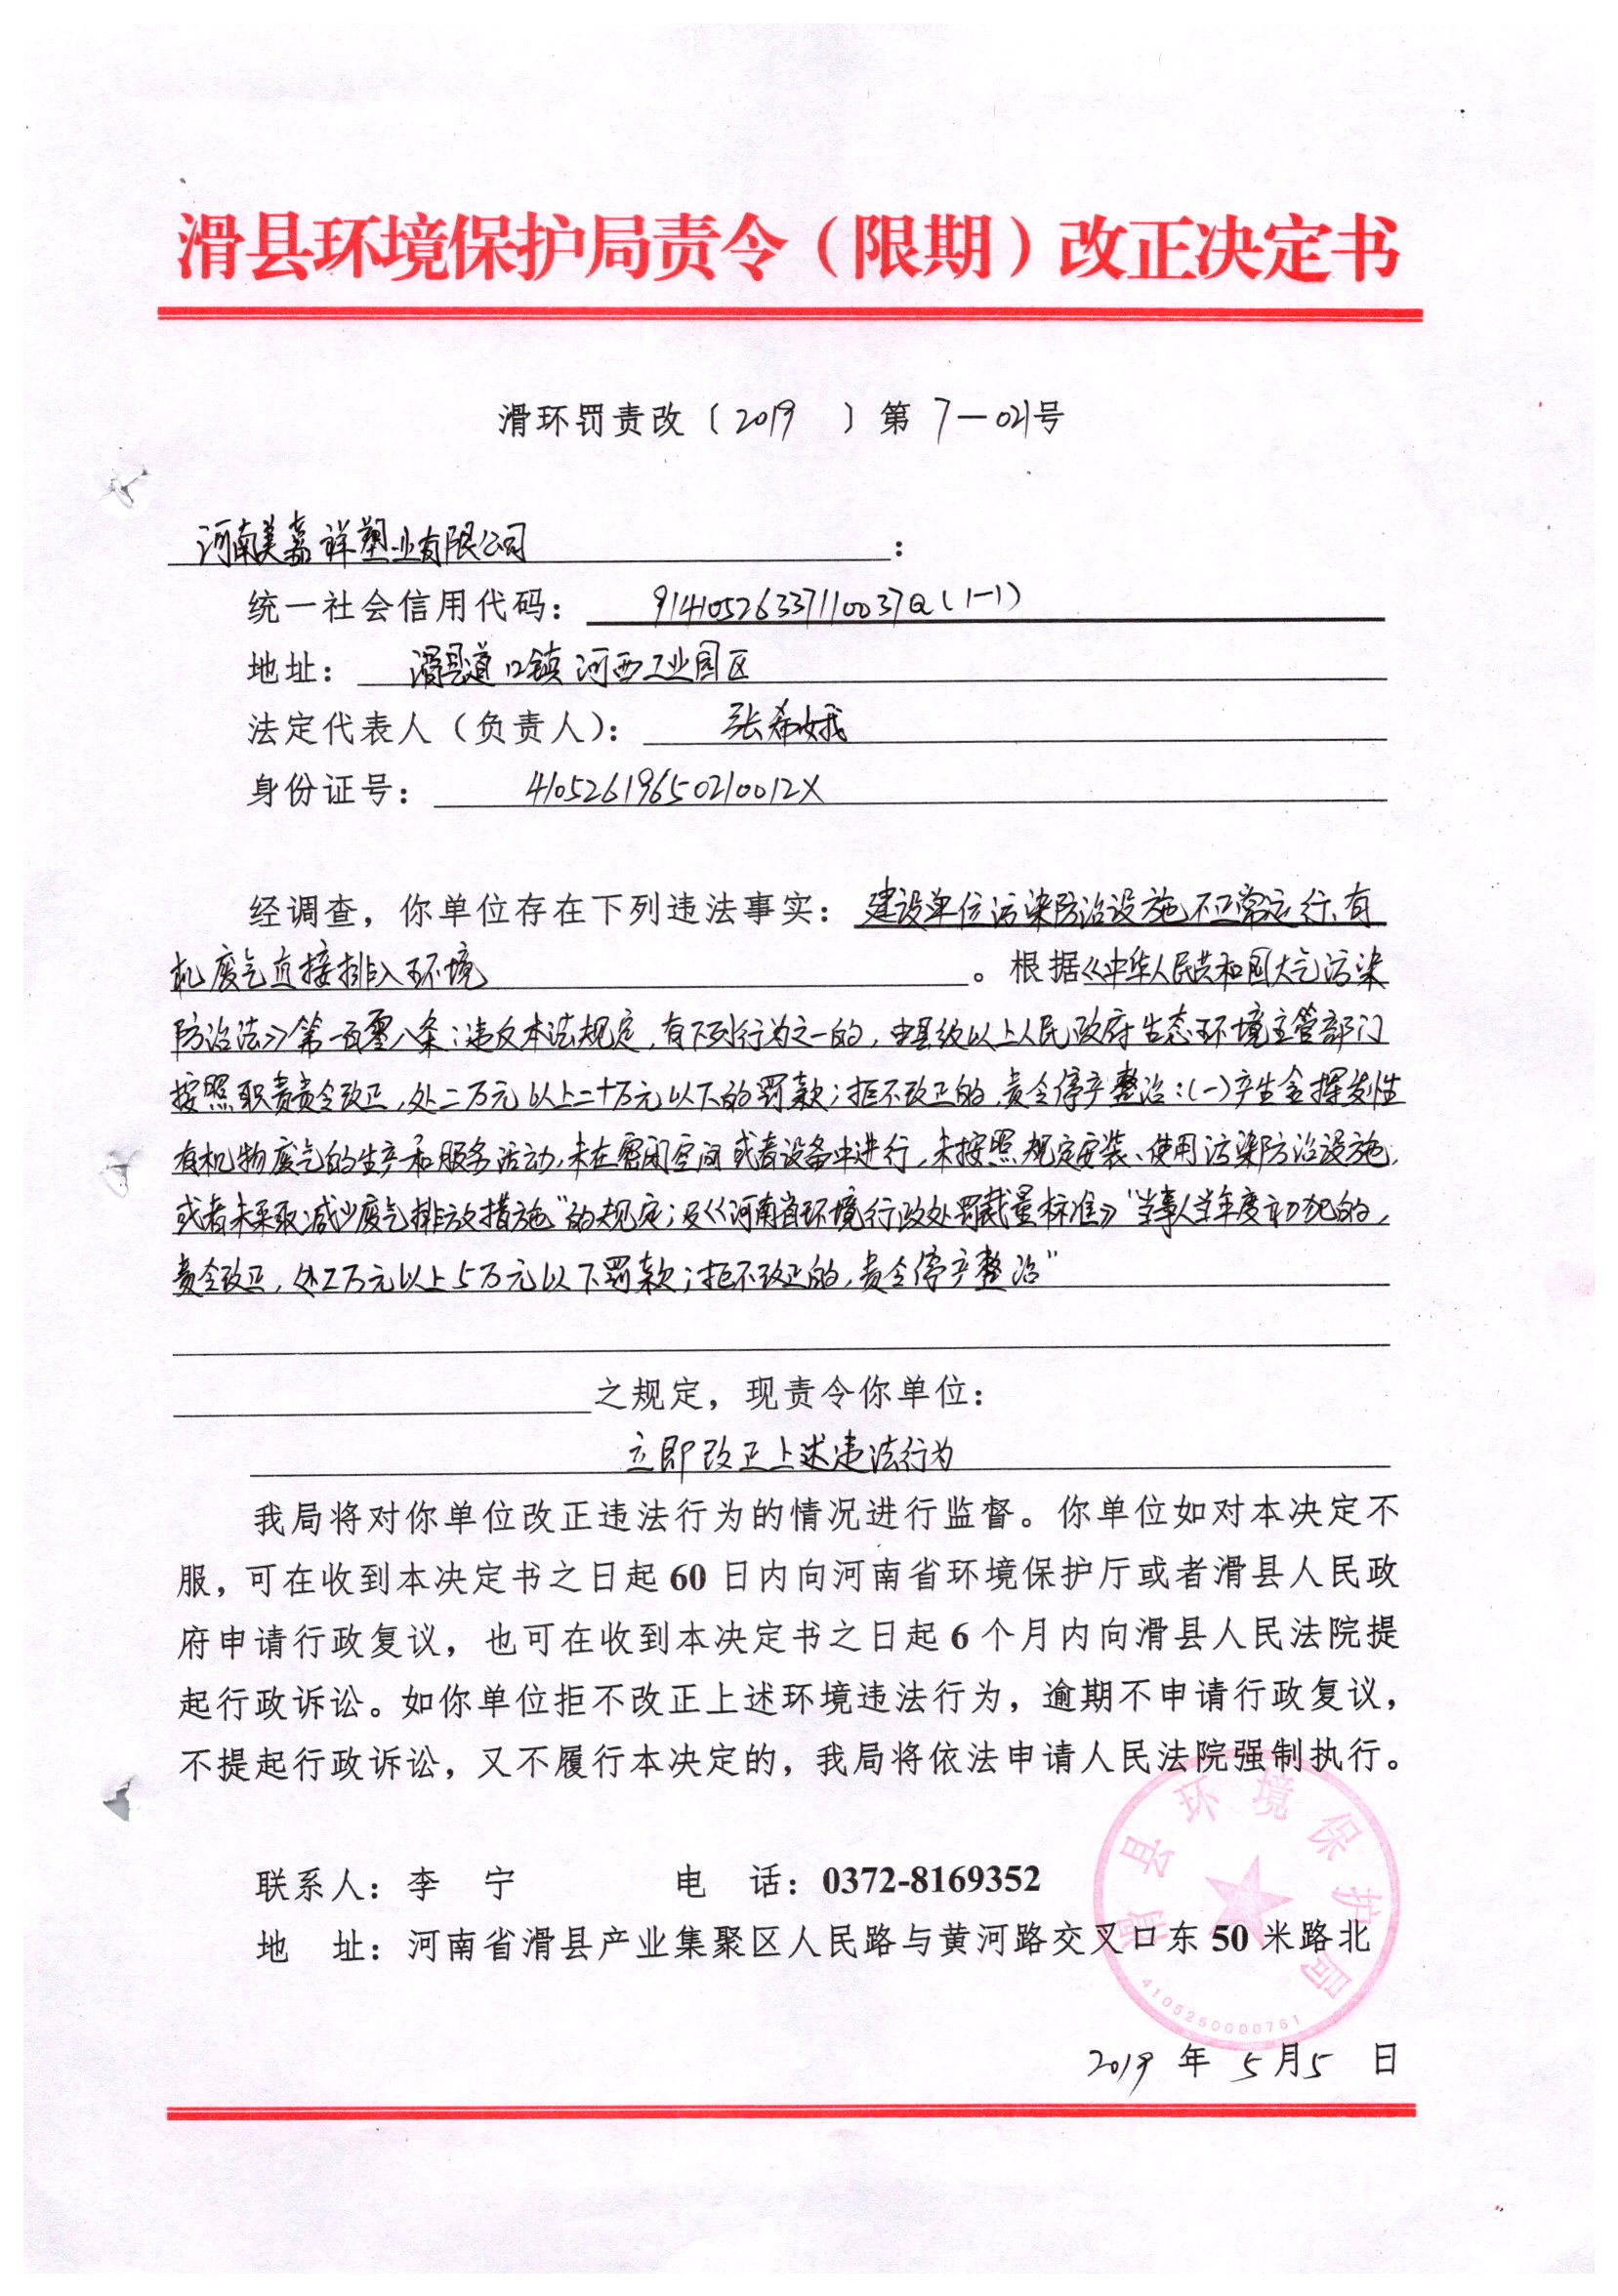 滑县环境保护局责令（限期）改正决定书
滑环罚责改〔2019 〕第7-021号
河南美嘉祥塑业有限公司：
统一社会信用代码：91410526337110037Q(1-1)
地址：滑县道口镇河西工业园区
法定代表人（负责人）：张希娥
身份证号：41052619650210012X
经调查，你单位存在下列违法事实：建设单位污染防治设施不正常运行、有
机废气直接排入环境。根据《中华人民共和国大气污染
防治法》第一百零八条：违反本法规定，有下列行为之一的，由县级以上人民政府生态环境主管部门
按照职责责令改正，处二万元以上二十万元以下的罚款；拒不改正的，责令停产整治：(一)产生含挥发性
有机物废气的生产和服务活动，未在密闭空间或者设备中进行，未按照规定安装、使用污染防治设施，
或者未采取减少废气排放措施”的规定；及《河南省环境行政处罚裁量标准》“当事人当年度初犯的，
责令改正，处2万元以上5万元以下罚款；拒不改正的，责令停产整治”
之规定，现责令你单位：
立即改正上述违法行为
我局将对你单位改正违法行为的情况进行监督。你单位如对本决定不
服，可在收到本决定书之日起60日内向河南省环境保护厅或者滑县人民政
府申请行政复议，也可在收到本决定书之日起6个月内向滑县人民法院提
起行政诉讼。如你单位拒不改正上述环境违法行为，逾期不申请行政复议，
不提起行政诉讼，又不履行本决定的，我局将依法申请人民法院强制执行。
联系人：李 宁 电 话：0372-8169352
地 址：河南省滑县产业集聚区人民路与黄河路交叉口东50米路北
滑县环境保护局
4105260000761
2019 年 5月5 日